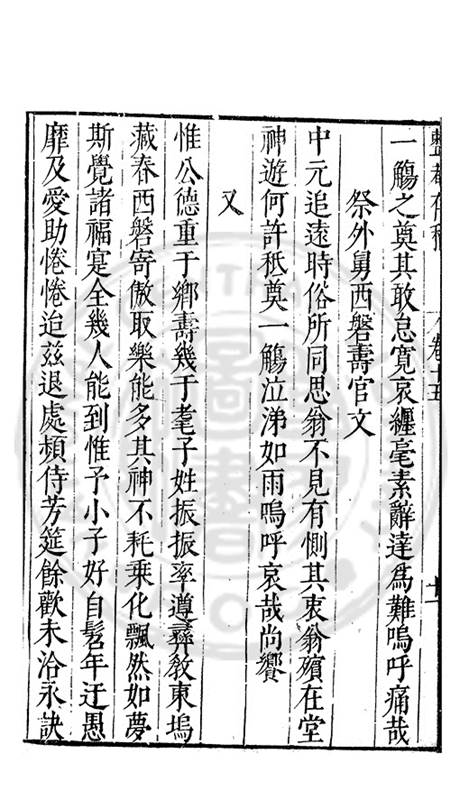 整菴存稿 卷十五
一觴之奠其敢怠寬哀纏毫素辭達爲難嗚呼痛哉
祭外舅西磐壽官文
中元追遠時俗所同思翁不見有惻其衷翁殯在堂
神遊何許秪奠一觴泣涕如雨嗚呼哀哉尚饗
又
惟公德重于鄉壽幾于耄子姓振振率遵彞敎東塢
藏春西磐寄傲取樂能多其神不耗乘化飄然如夢
斯覺諸福寔全幾人能到惟予小子好自髫年迂愚
靡及愛助惓惓迨茲退處頻侍芳筵餘歡未洽永訣